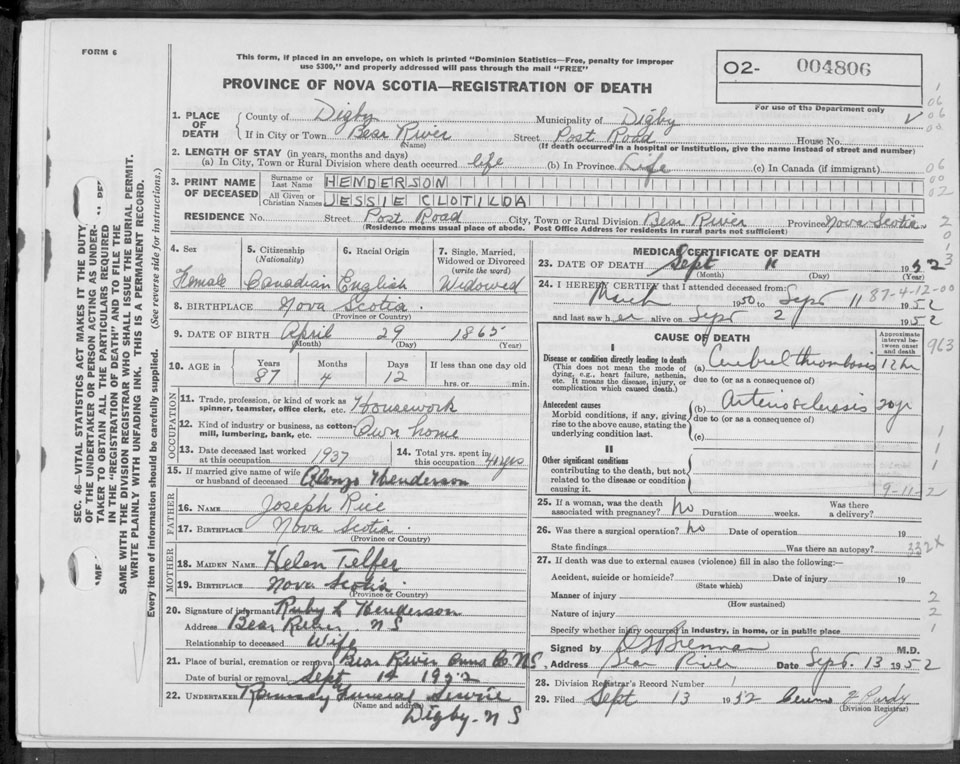 FORM 6
This form, if placed in an envelope, on which is printed "Dominion Statistics—Free, penalty for improper
use $300," and properly addressed will pass through the mail "FREE"
PROVINCE OF NOVA SCOTIA—REGISTRATION OF DEATH
02- 004806
For use of the Department only
1. PLACE OF DEATH County of Digby Municipality of Digby
If in City or Town Bear River Street Post Road House No.
(Name) (If death occurred in a hospital or institution, give the name instead of street and number)
2. LENGTH OF STAY (in years, months and days)
(a) In City, Town or Rural Division where death occurred life (b) In Province Life (c) In Canada (if immigrant)
3. PRINT NAME OF DECEASED Surname or Last Name HENDERSON
All Given or Christian Names JESSIE CLOTILDA
RESIDENCE No. Street Post Road City, Town or Rural Division Bear River Province Nova Scotia
(Residence means usual place of abode. Post Office Address for residents in rural parts not sufficient)
4. Sex 5. Citizenship (Nationality) 6. Racial Origin 7. Single, Married, Widowed or Divorced (write the word)
Female Canadian English Widowed
8. BIRTHPLACE Nova Scotia
(Province or Country)
9. DATE OF BIRTH April 29 1865
(Month) (Day) (Year)
10. AGE in Years Months Days If less than one day old
87 4 12 hrs. or min.
OCCUPATION
11. Trade, profession, or kind of work as spinner, teamster, office clerk, etc. Housework
12. Kind of industry or business, as cotton-mill, lumbering, bank, etc. Own home
13. Date deceased last worked at this occupation 1937 14. Total yrs. spent in this occupation 40 yrs
15. If married give name of wife or husband of deceased Alonzo Henderson
FATHER
16. NAME Joseph Rice
17. BIRTHPLACE Nova Scotia
(Province or Country)
MOTHER
18. MAIDEN NAME Helen Telfer
19. BIRTHPLACE Nova Scotia
(Province or Country)
20. Signature of informant Ruby L Henderson
Address Bear River N S
Relationship to deceased Wife
21. Place of burial, cremation or removal Bear River Anna Co. N.S.
Date of burial or removal Sept 14 1952
22. UNDERTAKER Funeral Service
(Name and address)
Digby - N S
MEDICAL CERTIFICATE OF DEATH
23. DATE OF DEATH Sept 11 1952
(Month) (Day) (Year)
24. I HEREBY CERTIFY that I attended deceased from:
March 1950 to Sept 11 1952
87-4-12-00
and last saw her alive on Sept 2 1952
CAUSE OF DEATH
Approximate interval between onset and death
I
Disease or condition directly leading to death
(This does not mean the mode of dying, e.g., heart failure, asthenia, etc. It means the disease, injury, or complication which caused death.)
(a) Cerebral thrombosis 12 hr
due to (or as a consequence of)
Antecedent causes
Morbid conditions, if any, giving rise to the above cause, stating the underlying condition last.
(b) Arteriosclerosis 20 yr
due to (or as a consequence of)
(c)
II
Other significant conditions
contributing to the death, but not related to the disease or condition causing it.
9-11-2
25. If a woman, was the death associated with pregnancy? No Duration weeks. Was there a delivery?
26. Was there a surgical operation? No Date of operation 19
State findings Was there an autopsy? 332X
27. If death was due to external causes (violence) fill in also the following:—
Accident, suicide or homicide? Date of injury 19
(State which)
Manner of injury
(How sustained)
Nature of injury
Specify whether injury occurred in industry, in home, or in public place
Signed by Brennan M.D.
Address Bear River Date Sept. 13 1952
28. Division Registrar's Record Number 1
29. Filed Sept 13 1952 Purdy
(Division Registrar)
963
SEC. 46—VITAL STATISTICS ACT MAKES IT THE DUTY,
OF THE UNDERTAKER OR PERSON ACTING AS UNDER-
TAKER TO OBTAIN ALL THE PARTICULARS REQUIRED
IN THE "REGISTRATION OF DEATH" AND TO FILE THE
SAME WITH THE DIVISION REGISTRAR WHO SHALL ISSUE THE BURIAL PERMIT.
WRITE PLAINLY WITH UNFADING INK. THIS IS A PERMANENT RECORD.
Every item of information should be carefully supplied. (See reverse side for instructions.)